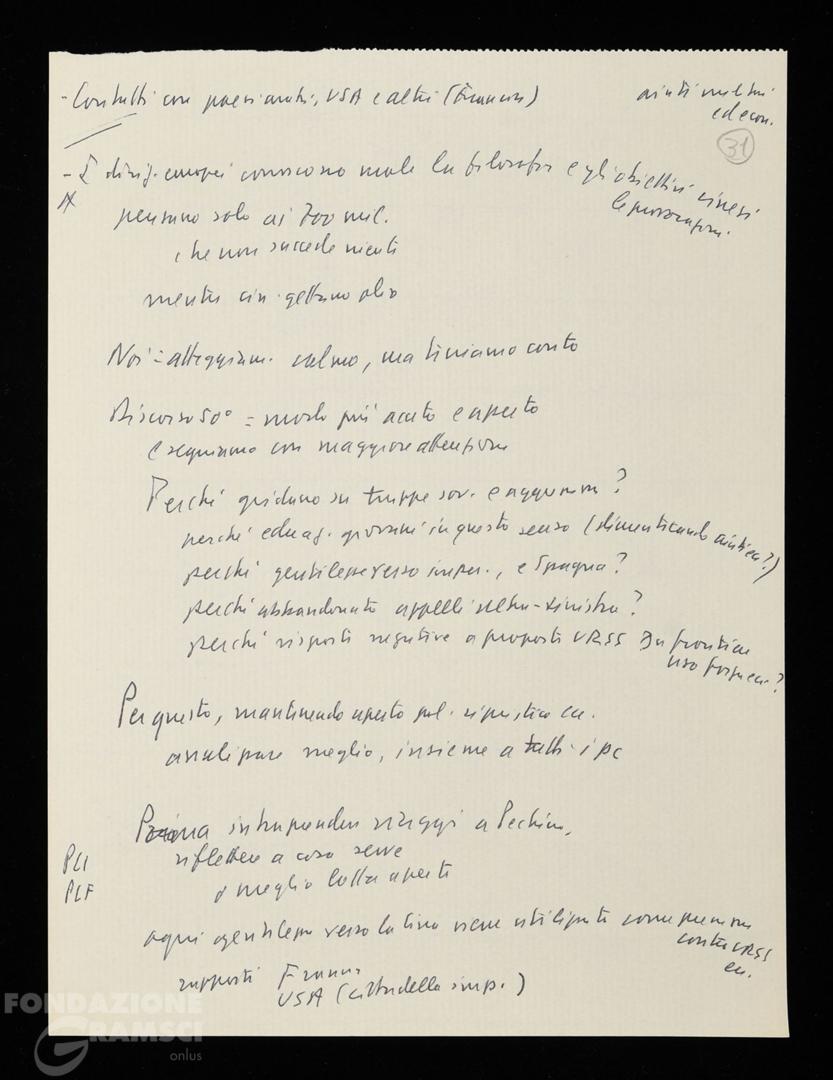 - Contatti con paesi arabi, USA e altri (Francia)
aiuti militari
ed econ.
31
- I dirig. europei conoscono male la filosofia e gli obiettivi cinesi
le provocazioni.
pensano solo ai 700 mil.
che non succede niente
mentre cin. gettano olio
Noi = atteggiam. calmo, ma teniamo conto
Discorso 50° = modo più acuto e aperto
e seguiamo con maggiore attenzione
Perché gridano su truppe sov. e aggression?
perché educaz. giovani in questo senso (dimenticando aiuti ecc.?)
perché gentilezze verso imper., e Spagna?
perché abbandonato appelli ultra-sinistra?
perché risposte negative a proposte URSS su frontiere
uso forza ecc.?
Per questo, mantenendo aperto pol. ecc.
analizzare meglio, insieme a tutti i pc
Prima intraprendere viaggi a Pechino,
riflettere a cosa serve
o meglio lotta aperta
PCI
PCF
ogni gentilezza verso la Cina viene utilizzata come
contro URSS
ecc.
rapporti Francia
USA (cittadella imp.)
FONDAZIONE
GRAMSCI
onlus